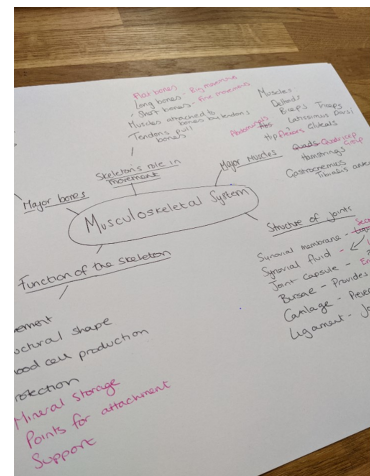 Flat bones -
Long bones - Big movements
Short bones - Fine movements
Muscles attached to
bones via tendons
Tendons pull
bones
Skeleton's role in
movement
Major bones
Major Muscles
Muscles
Deltoids
Biceps Triceps
Abdominals Latissimus Dorsi
Hip flexors Gluteals
Quads Quadricep
Group
Hamstrings
Gastrocnemius
Tibialis
Musculoskeletal System
Structure of joints
Synovial membrane -
Synovial fluid -
Joint capsule -
Bursae - Provides
Cartilage -
Ligament -
Function of the skeleton
Structural shape
Blood cell production
Protection
Mineral storage
Points for attachment
Support